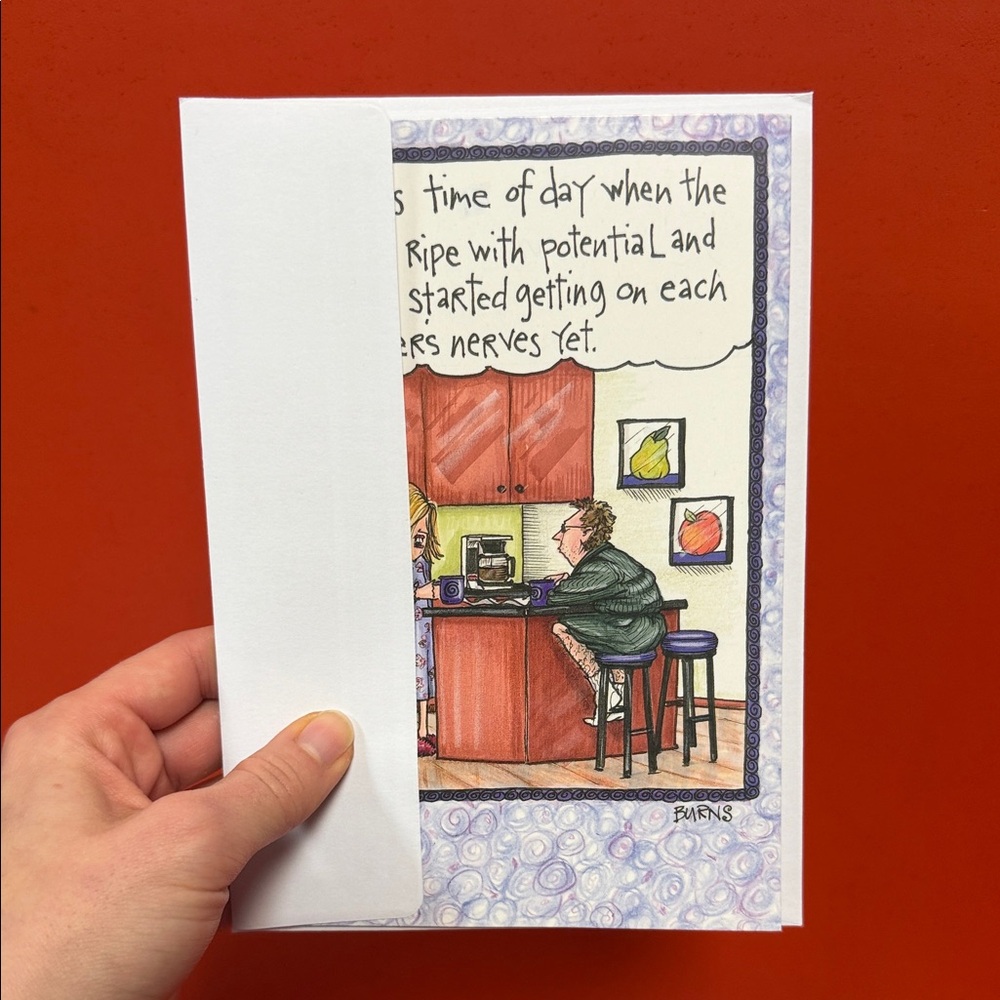 s time of day when the
Ripe with potential and
started getting on each
ers nerves yet.
BURNS